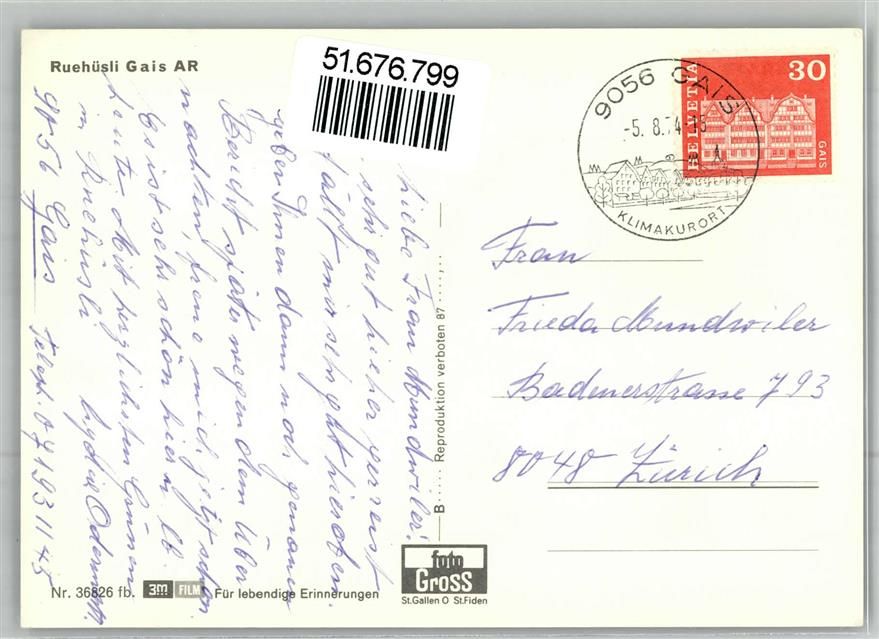 Ruehüsli Gais AR
51.676.799
9056 GAIS
-5. 8.74-18
KLIMAKURORT
HELVETIA
30
GAIS
Liebe Frau Mundwiler!
sehr gut hieher gereist
fällt mir sehr gut hier oben.
geben Ihnen dann noch genauen
Bericht später wegen dem Über
nachten, freue mich jetzt schon.
Es ist sehr schön hier u. lb.
heute Mit herzlichsten Grüssen
in Ruehüsli Lydia
9056 Gais Telef. 071 93 11 45
B Reproduktion verboten 87
Frau
Frieda Mundwiler
Badenerstrasse 793
8048 Zürich
Nr. 36826 fb. 3M FILM Für lebendige Erinnerungen
foto
Gross
St.Gallen O St.Fiden